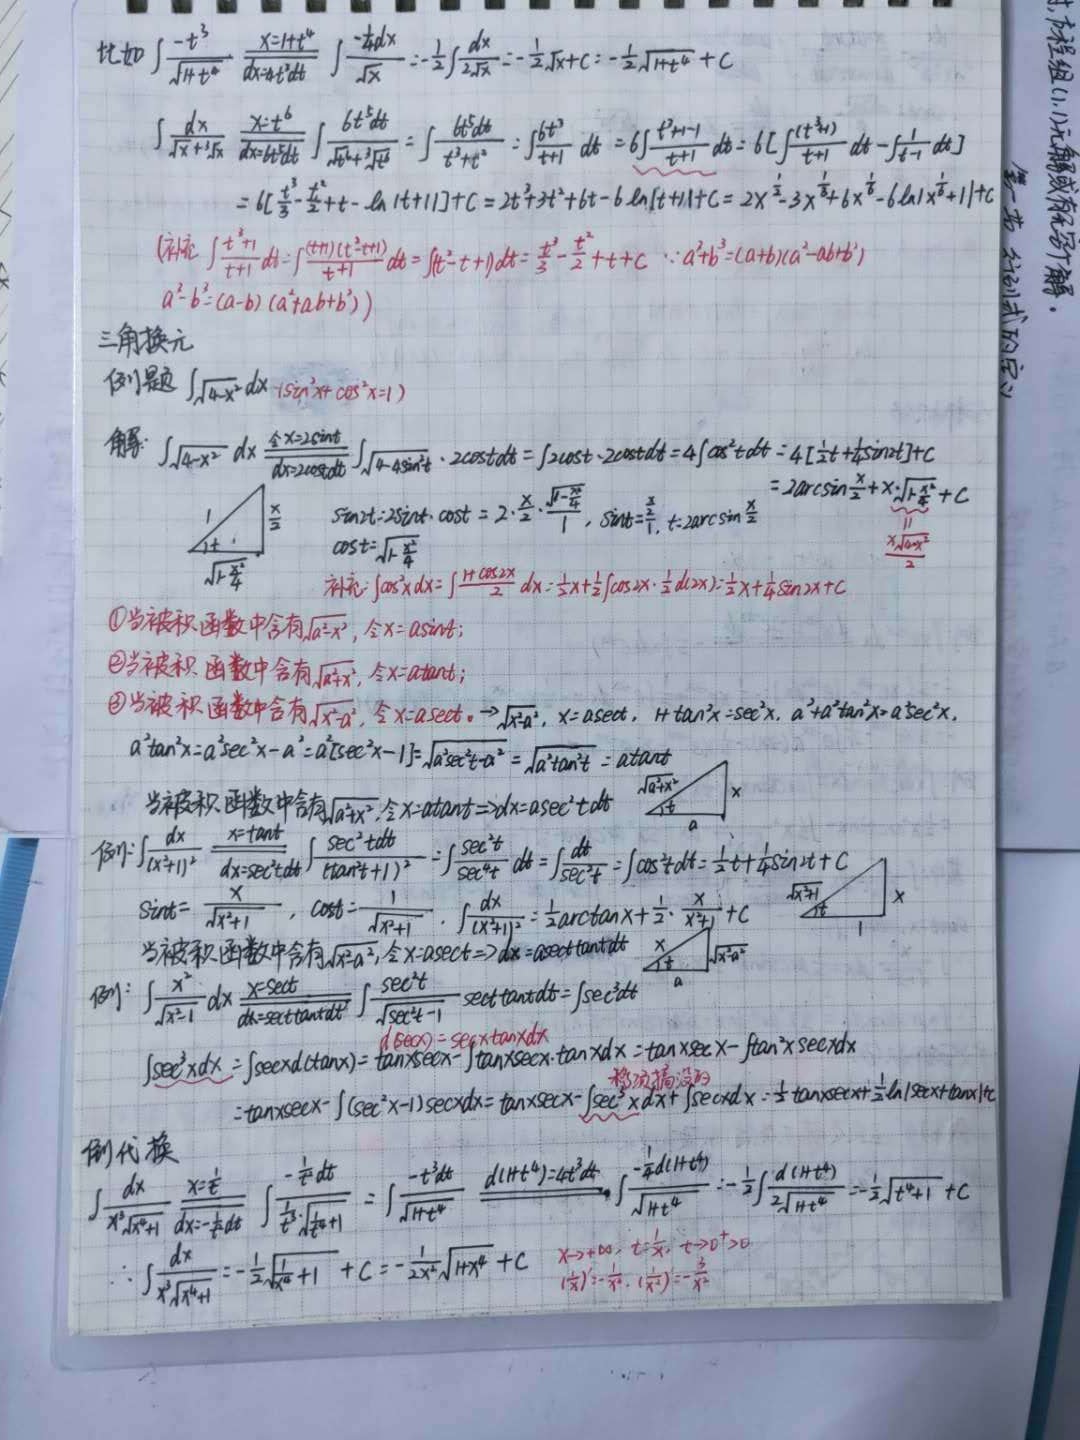 比如 ∫ -t³/√(1+t⁴) (x=1+t⁴ / dx=4t³dt) ∫ -¼dx/√x = -½∫ dx/2√x = -½√x+C = -½√(1+t⁴)+C
∫ dx/(√x+³√x) (x=t⁶ / dx=6t⁵dt) ∫ 6t⁵dt/(√t⁶+³√t⁶) = ∫ 6t⁵dt/(t³+t²) = ∫ 6t³/(t+1) dt = 6∫ (t³+1-1)/(t+1) dt = 6[∫ (t³+1)/(t+1) dt - ∫ 1/(t-1) dt]
= 6[t³/3 - t²/2 + t - ln|t+1|]+C = 2t³+3t²+6t-6ln|t+1|+C = 2x^½-3x^⅓+6x^(1/6)-6ln|x^(1/6)+1|+C
(补充 ∫ (t³+1)/(t+1) dt = ∫ (t+1)(t²-t+1)/(t+1) dt = ∫(t²-t+1)dt = t³/3 - t²/2 + t + C ∵ a³+b³=(a+b)(a²-ab+b²)
a³-b³=(a-b)(a²+ab+b²))
三角换元
例题 ∫√(4-x²) dx (sin²x+cos²x=1)
解: ∫√(4-x²) dx (令x=2sint / dx=2costdt) ∫√(4-4sin²t)·2costdt = ∫2cost·2costdt = 4∫cos²tdt = 4[½t+¼sin2t]+C
= 2arcsin x/2 + x·√(1-x²/4) + C
1 t x/2 √(1-x²/4)
sin2t=2sint·cost = 2·x/2·√(1-x²/4)/1, sint=(x/2)/1, t=2arcsin x/2
cost=√(1-x²/4)
= x√(4-x²)/2
补充: ∫cos²xdx = ∫ (1+cos2x)/2 dx = ½x+½∫cos2x·½d(2x) = ½x+¼sin2x+C
①当被积函数中含有√(a²-x²), 令x=asint;
②当被积函数中含有√(a²+x²), 令x=atant;
③当被积函数中含有√(x²-a²), 令x=asect。→√(x²-a²), x=asect, 1+tan²x=sec²x, a²+a²tan²x=a²sec²x,
a²tan²x=a²sec²x-a²=a²[sec²x-1]=√(a²sec²t-a²)=√(a²tan²t)=atant
当被积函数中含有√(a²+x²), 令x=atant⇒dx=asec²tdt
√(a²+x²) x t a
例: ∫ dx/(x²+1)² (x=tant / dx=sec²tdt) ∫ sec²tdt/(tan²t+1)² = ∫ sec²t/sec⁴t dt = ∫ dt/sec²t = ∫cos²tdt = ½t+¼sin2t+C
√(x²+1) x t 1
sint= x/√(x²+1), cost= 1/√(x²+1). ∫ dx/(x²+1)² = ½arctanx+½·x/(x²+1)+C
当被积函数中含有√(x²-a²), 令x=asect⇒dx=asecttantdt
x t √(x²-a²) a
例: ∫ x²/√(x²-1) dx (x=sect / dx=secttantdt) ∫ sec²t/√(sec²t-1) secttantdt = ∫sec³dt
d(secx)=secxtanxdx
∫sec³xdx = ∫secxd(tanx) = tanxsecx-∫tanxsecx·tanxdx = tanxsecx-∫tan²xsecxdx
= tanxsecx-∫(sec²x-1)secxdx = tanxsecx-∫sec³xdx+∫secxdx = ½tanxsecx+½ln|secx+tanx|+C
倒代换
∫ dx/(x³√(x⁴+1)) (x=1/t / dx=-1/t²dt) ∫ (-1/t²dt)/(1/t³·√(1/t⁴+1)) = ∫ -t³dt/√(1+t⁴) (d(1+t⁴)=4t³dt) ∫ -¼d(1+t⁴)/√(1+t⁴) = -½∫ d(1+t⁴)/2√(1+t⁴) = -½√(t⁴+1)+C
∴ ∫ dx/(x³√(x⁴+1)) = -½√(1/x⁴+1)+C = -1/(2x²)√(1+x⁴)+C
x→+∞, t=1/x, t→0⁺>0